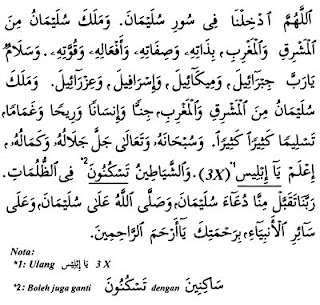 اَللّٰهُمَّ اَدْخِلْنَا فِى سُورِ سُلَيْمَانَ. وَمَلَكَ سُلَيْمَانُ مِنَ
الْمَشْرِقِ وَالْمَغْرِبِ، بِذَاتِهِ وَصِفَاتِهِ وَأَفْعَالِهِ وَقُوَّتِهِ. وَسَلَامٌ
يَارَبَّ جِبْرَآئِيلَ وَمِيكَائِيلَ وَإِسْرَافِيلَ وَعِزْرَائِيلَ. وَمَلَكَ
سُلَيْمَانُ مِنَ الْمَشْرِقِ وَالْمَغْرِبِ، جِنًّا وَإِنْسَانًا وَرِيحًا وَغَمَامًا،
تَسْلِيمًا كَثِيرًا كَثِيرًا. وَسُبْحَانَهُ، وَتَعَالَى جَلَّ جَلَالُهُ، وَكَمَالُهُ،
إِعْلَمْ يَا إِبْلِيسُ *1 (3X). وَالشَّيَاطِينُ تَسْكُنُونَ *2 فِى الظُّلُمَاتِ.
رَبَّنَا تَقَبَّلْ مِنَّا دُعَاءَ سُلَيْمَانَ، وَصَلَّى اللهُ عَلَى سُلَيْمَانَ، وَعَلَى
سَائِرِ الْأَنْبِيَاءِ، بِرَحْمَتِكَ يَاأَرْحَمَ الرَّاحِمِينَ.
Nota:
*1: Ulang يَا إِبْلِيسُ 3 X
*2: Boleh juga ganti تَسْكُنُونَ dengan سَاكِنِينَ